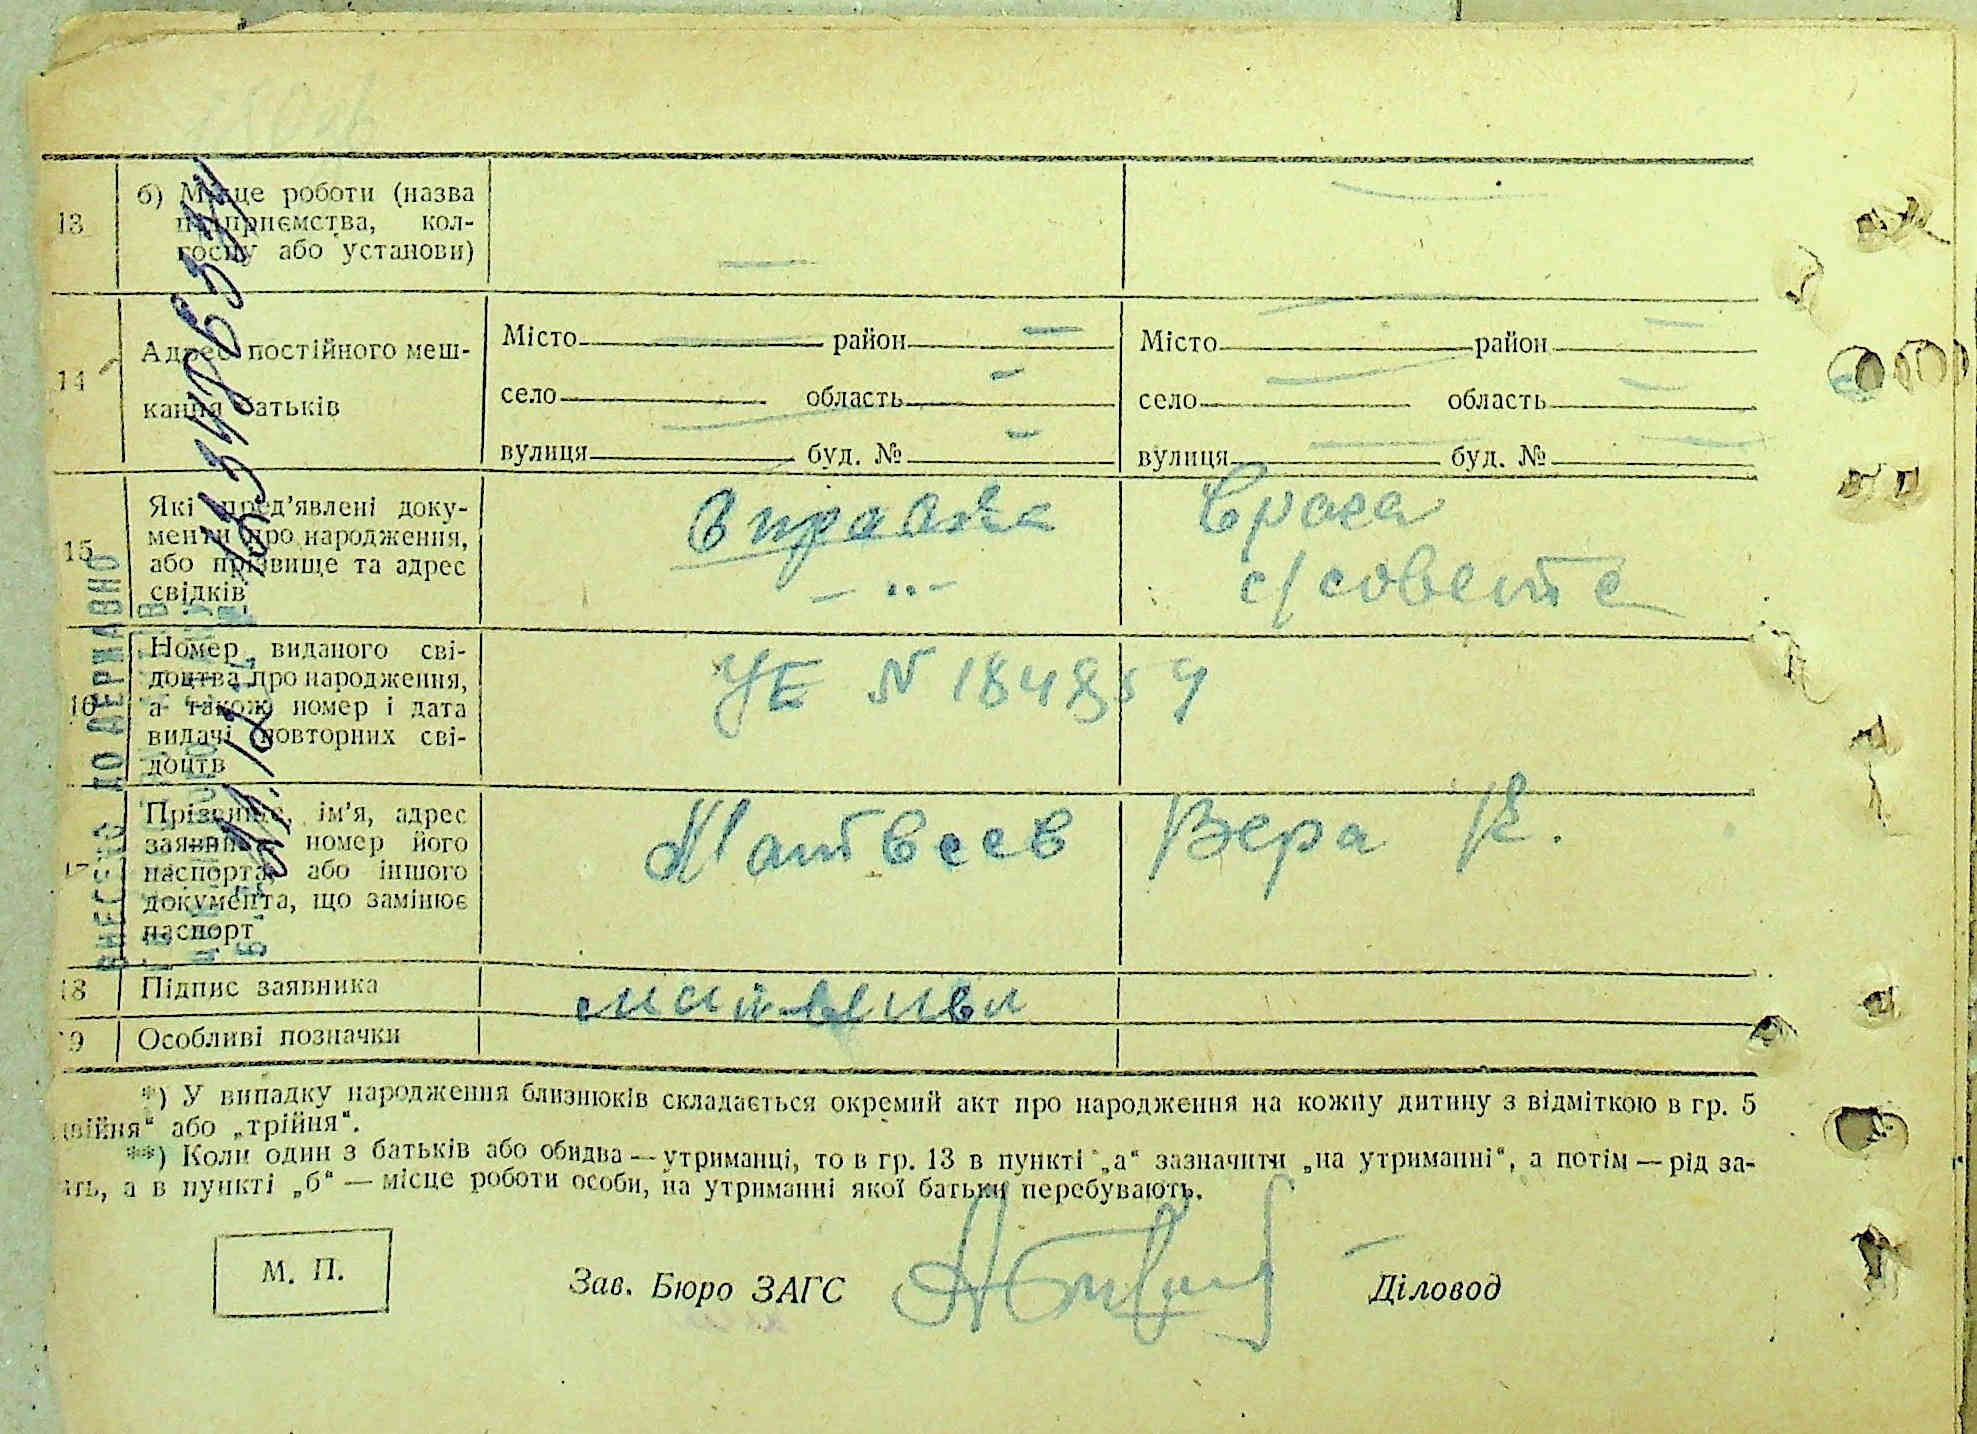 13
б) Місце роботи (назва
підприємства, кол-
госпу або установи)
14
Адрес постійного меш-
кання батьків
Місто район
село область
вулиця буд. №
Місто район
село область
вулиця буд. №
15
Які пред'явлені доку-
менти про народження,
або прізвище та адрес
свідків
с/совета
16
Номер виданого сві-
доцтва про народження,
а також номер і дата
видачі повторних сві-
доцтв
УЕ № 184
17
Прізвище, ім'я, адрес
заявника, номер його
паспорта, або іншого
документа, що замінює
паспорт
Матвеев Вера
18
Підпис заявника
19
Особливі позначки
ВНЕСЕНО ДО ДЕРЖАВНО
*) У випадку народження близнюків складається окремий акт про народження на кожну дитину з відміткою в гр. 5
двійня" або „трійня".
**) Коли один з батьків або обидва — утриманці, то в гр. 13 в пункті „а" зазначити „на утриманні", а потім — рід за-
ять, а в пункті „б" — місце роботи особи, на утриманні якої батьки перебувають.
М. П.
Зав. Бюро ЗАГС
Діловод